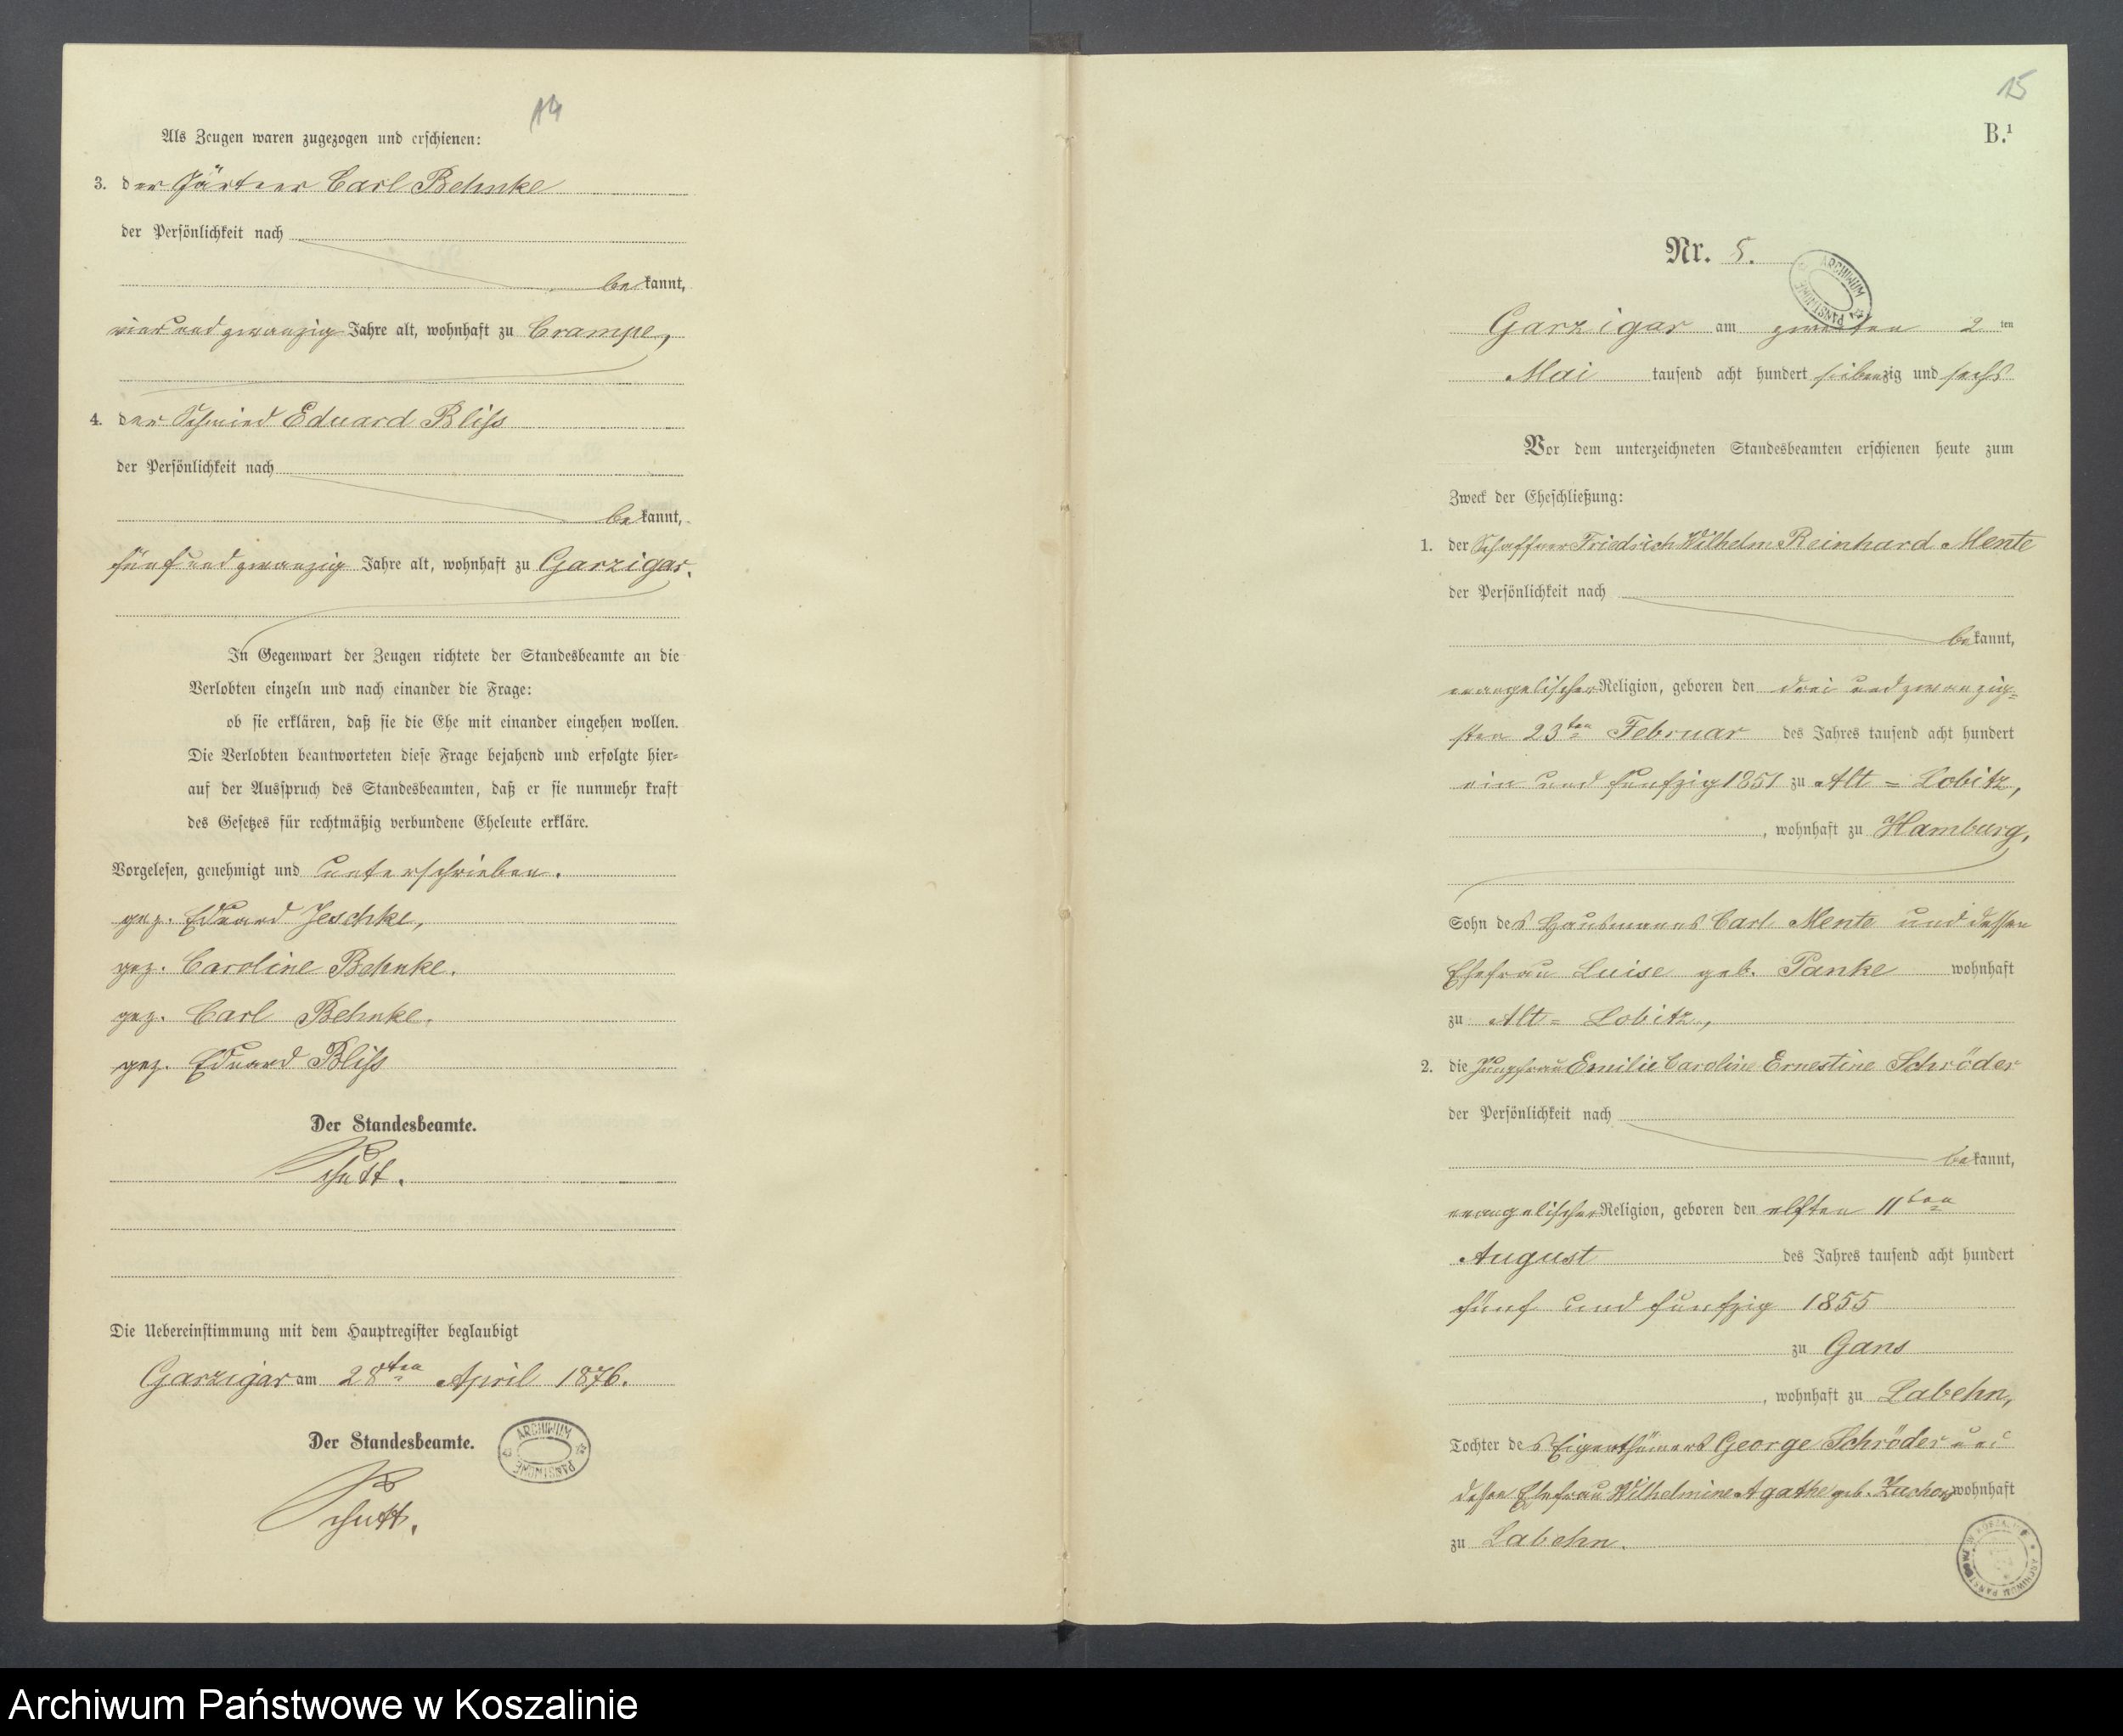 14
Als Zeugen waren zugezogen und erschienen:
3. der Gärtner Carl Behnke
der Persönlichkeit nach
bekannt,
vier und zwanzig Jahre alt, wohnhaft zu Crampe,
4. der Schmied Eduard Bliss
der Persönlichkeit nach
bekannt,
fünf und zwanzig Jahre alt, wohnhaft zu Garzigar.
In Gegenwart der Zeugen richtete der Standesbeamte an die
Verlobten einzeln und nach einander die Frage:
ob sie erklären, daß sie die Ehe mit einander eingehen wollen.
Die Verlobten beantworteten diese Frage bejahend und erfolgte hier-
auf der Ausspruch des Standesbeamten, daß er sie nunmehr kraft
des Gesetzes für rechtmäßig verbundene Eheleute erkläre.
Vorgelesen, genehmigt und unterschrieben.
gez. Eduard Jeschke,
gez. Caroline Behnke.
gez. Carl Behnke.
gez. Eduard Bliss
Der Standesbeamte.
Die Uebereinstimmung mit dem Hauptregister beglaubigt
Garzigar am 28ten April 1876.
Der Standesbeamte.
ARCHIWUM PAŃSTWOWE
15
B.1
Nr. 5.
ARCHIWUM PAŃSTWOWE
Garzigar am zweiten 2 ten
Mai tausend acht hundert siebenzig und sechs
Vor dem unterzeichneten Standesbeamten erschienen heute zum
Zweck der Eheschließung:
1. der Schaffner Friedrich Wilhelm Reinhard Mente
der Persönlichkeit nach
bekannt,
evangelischer Religion, geboren den drei und zwanzig=
sten 23ten Februar des Jahres tausend acht hundert
ein und funfzig 1851 zu Alt=Lobitz,
, wohnhaft zu Hamburg,
Sohn des Hausmanns Carl Mente und dessen
Ehefrau Luise geb. Panke wohnhaft
zu Alt=Lobitz,
2. die Jungfrau Emilie Caroline Ernestine Schröder
der Persönlichkeit nach
bekannt,
evangelischer Religion, geboren den elften 11ten
August des Jahres tausend acht hundert
fünf und funfzig 1855
zu Gans
, wohnhaft zu Labehn,
Tochter des Eigenthümers George Schröder und
dessen Ehefrau Wilhelmine Agathe geb. Zuchow wohnhaft
zu Labehn.
Archiwum Państwowe w Koszalinie